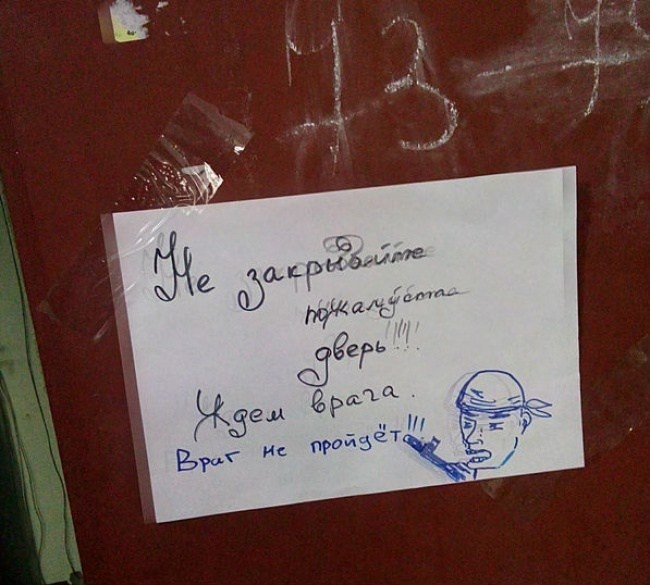 43
Не закрывайте
пожалуйста
дверь!!!
Ждем врага.
Враг не пройдёт!!!